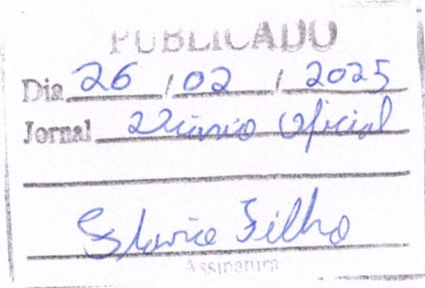 PUBLICADO
Dia 26 / 02 / 2025
Jornal Diário Oficial
Filho
Assinatura